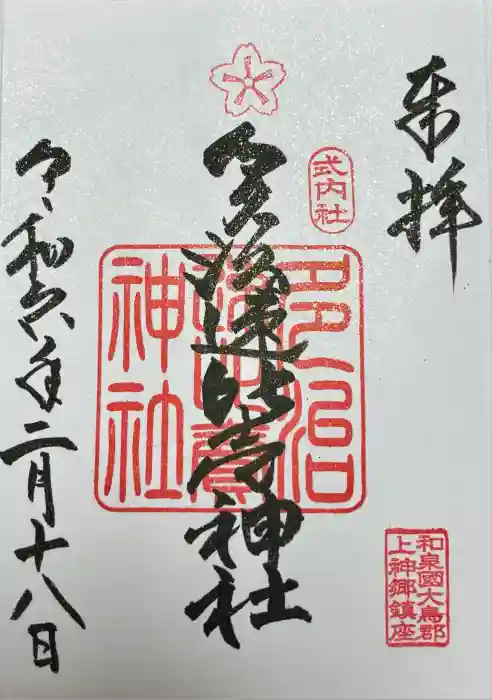 奉拝
式内社
多治速比売神社
多治
速比賣
神社
和泉國大鳥郡
上神郷鎮座
令和六年二月十八日